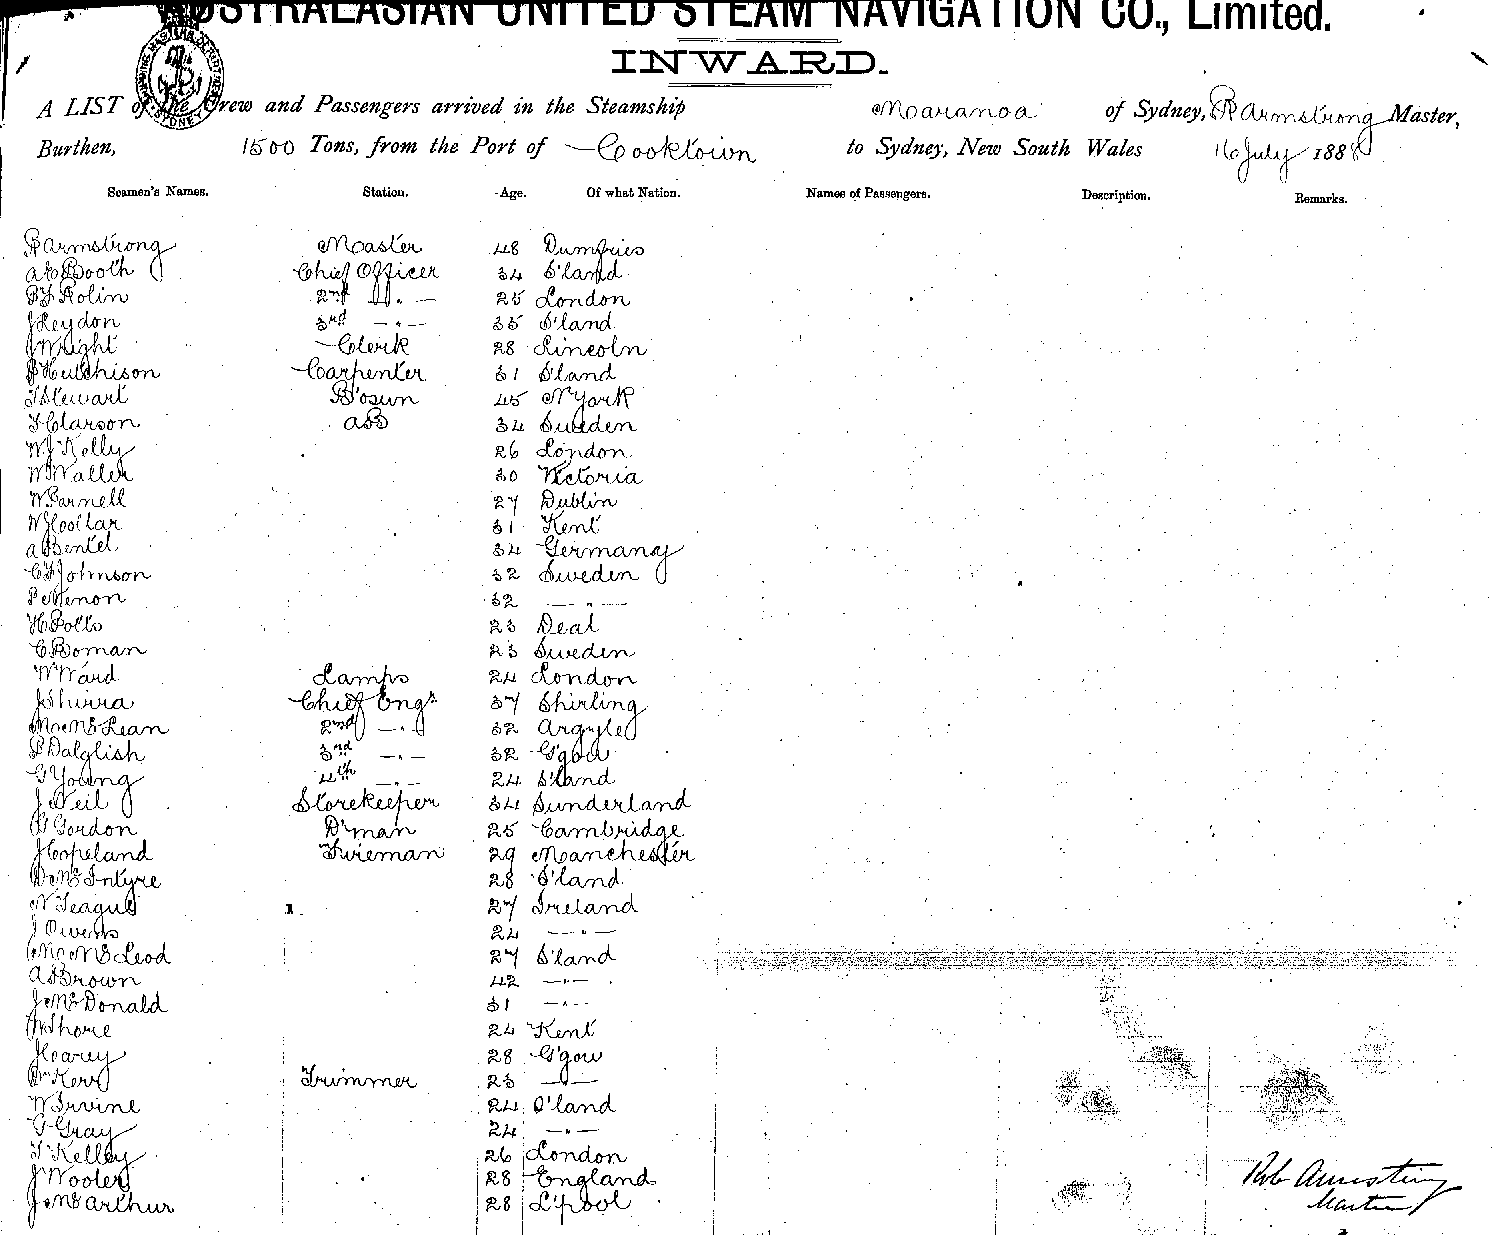 AUSTRALASIAN UNITED STEAM NAVIGATION CO., Limited.
INWARD.
A LIST of the Crew and Passengers arrived in the Steamship Maranoa of Sydney, R Armstrong Master,
Burthen, 1500 Tons, from the Port of Cooktown to Sydney, New South Wales 16 July 1888
Seamen's Names. Station. Age. Of what Nation. Names of Passengers. Description. Remarks.
R Armstrong Master 48 Dumfries
A C Booth Chief Officer 34 S'land
Rolin 2nd " 25 London
J Leydon 3rd " 35 S'land
J Wright Clerk 28 Lincoln
Hutchison Carpenter 31 S'land
Stewart B'osun 45 N York
Clarson AB 34 Sweden
W J Kelly 26 London
W Waller 30 Victoria
W Parnell 27 Dublin
W 31 Kent
A Bentel 34 Germany
C F Johnson 32 Sweden
P 32 "
H Potts 23 Deal
C Boman 23 Sweden
W Ward Lamps 24 London
J Shirra Chief Engr 37 Shirling
McLean 2nd " 32 Argyle
P Dalglish 3rd " 32 G'gow
G Young 4th " 24 S'land
J Neil Storekeeper 34 Sunderland
Gordon D'man 25 Cambridge
J Copeland Fireman 29 Manchester
D McIntyre 28 S'land
N Teague 27 Ireland
J Owens 24 "
McLeod 27 S'land
A Brown 42 "
J McDonald 31 "
Shore 24 Kent
28 G'gow
Kerr Trimmer 23 "
W Irvine 24 S'land
G Gray 24 "
T Kelley 26 London
J Wooler 28 England
J McArthur 28 L'pool
Rob Armstrong
Master